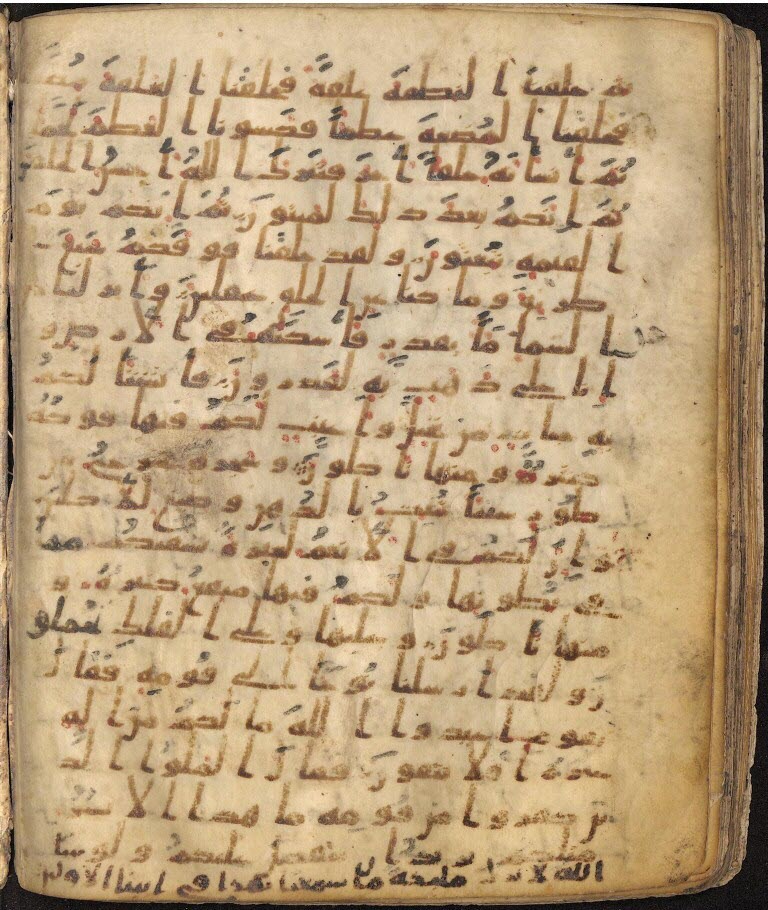 ثم خلقنا النطفة علقة فخلقنا العلقة مضغة
فخلقنا المضغة عظما فكسونا العظم لحما
ثم انشانه خلقا اخر فتبرك الله احسن الخلقين
ثم انكم بعد ذلك لميتون ثم انكم يوم
القيمه تبعثون ولقد خلقنا فوقكم سبع
طريق وما كنا عن الخلق غفلين وانزلنا من
السما ما بقدر فاسكنه في الارض و
انا على ذهب به لقدرون فانشانا لكم
به جنت من نخيل واعنب لكم فيها فوكه
كثيرة ومنها تاكلون وشجرة تخرج من
طور سينا تنبت بالدهن وصبغ للاكلين
وان لكم في الانعم لعبرة نسقيكم مما
في بطونها ولكم فيها منفع كثيرة و
منها تاكلون وعليها وعلى الفلك تحملو
ن ولقد ارسلنا نوحا الى قومه فقال
يقوم اعبدوا الله ما لكم من اله
غيره افلا تتقون فقال الملوا الذ
ين كفروا من قومه ما هذا الا بشر
مثلكم يريد ان يتفضل عليكم ولو شا
الله لانزل مليكة ما سمعنا بهذا في ابينا الاولين